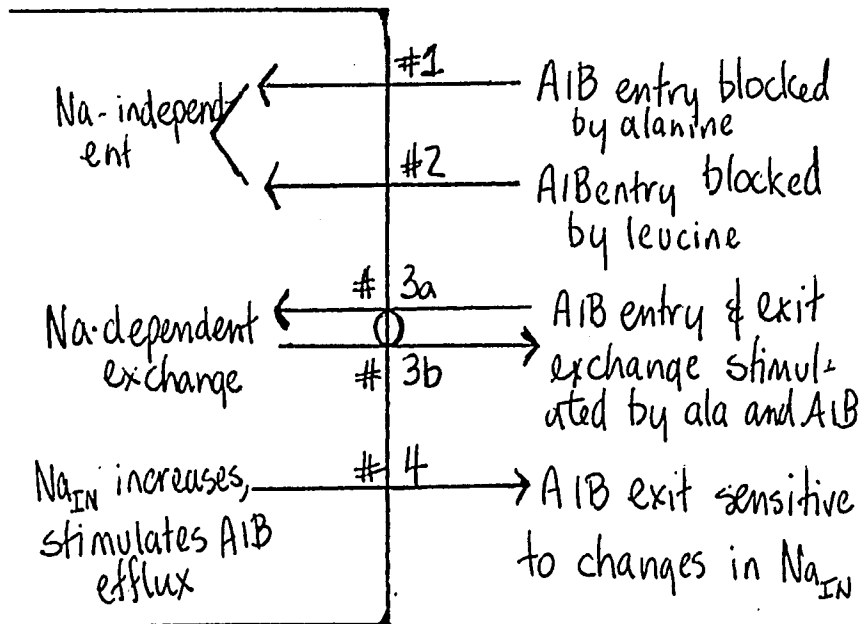 #1
Na-independ-
ent
AIB entry blocked
by alanine
#2
AIB entry blocked
by leucine
# 3a
Na-dependent
exchange
# 3b
AIB entry & exit
exchange stimul-
ated by ala and AIB
# 4
Na_IN increases,
stimulates AIB
efflux
AIB exit sensitive
to changes in Na_IN